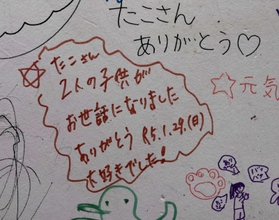 たこさん
ありがとう♡
たこさん
2人の子供が
お世話になりました
ありがとう R5.1.29.(日)
大好きでした!
☆元気